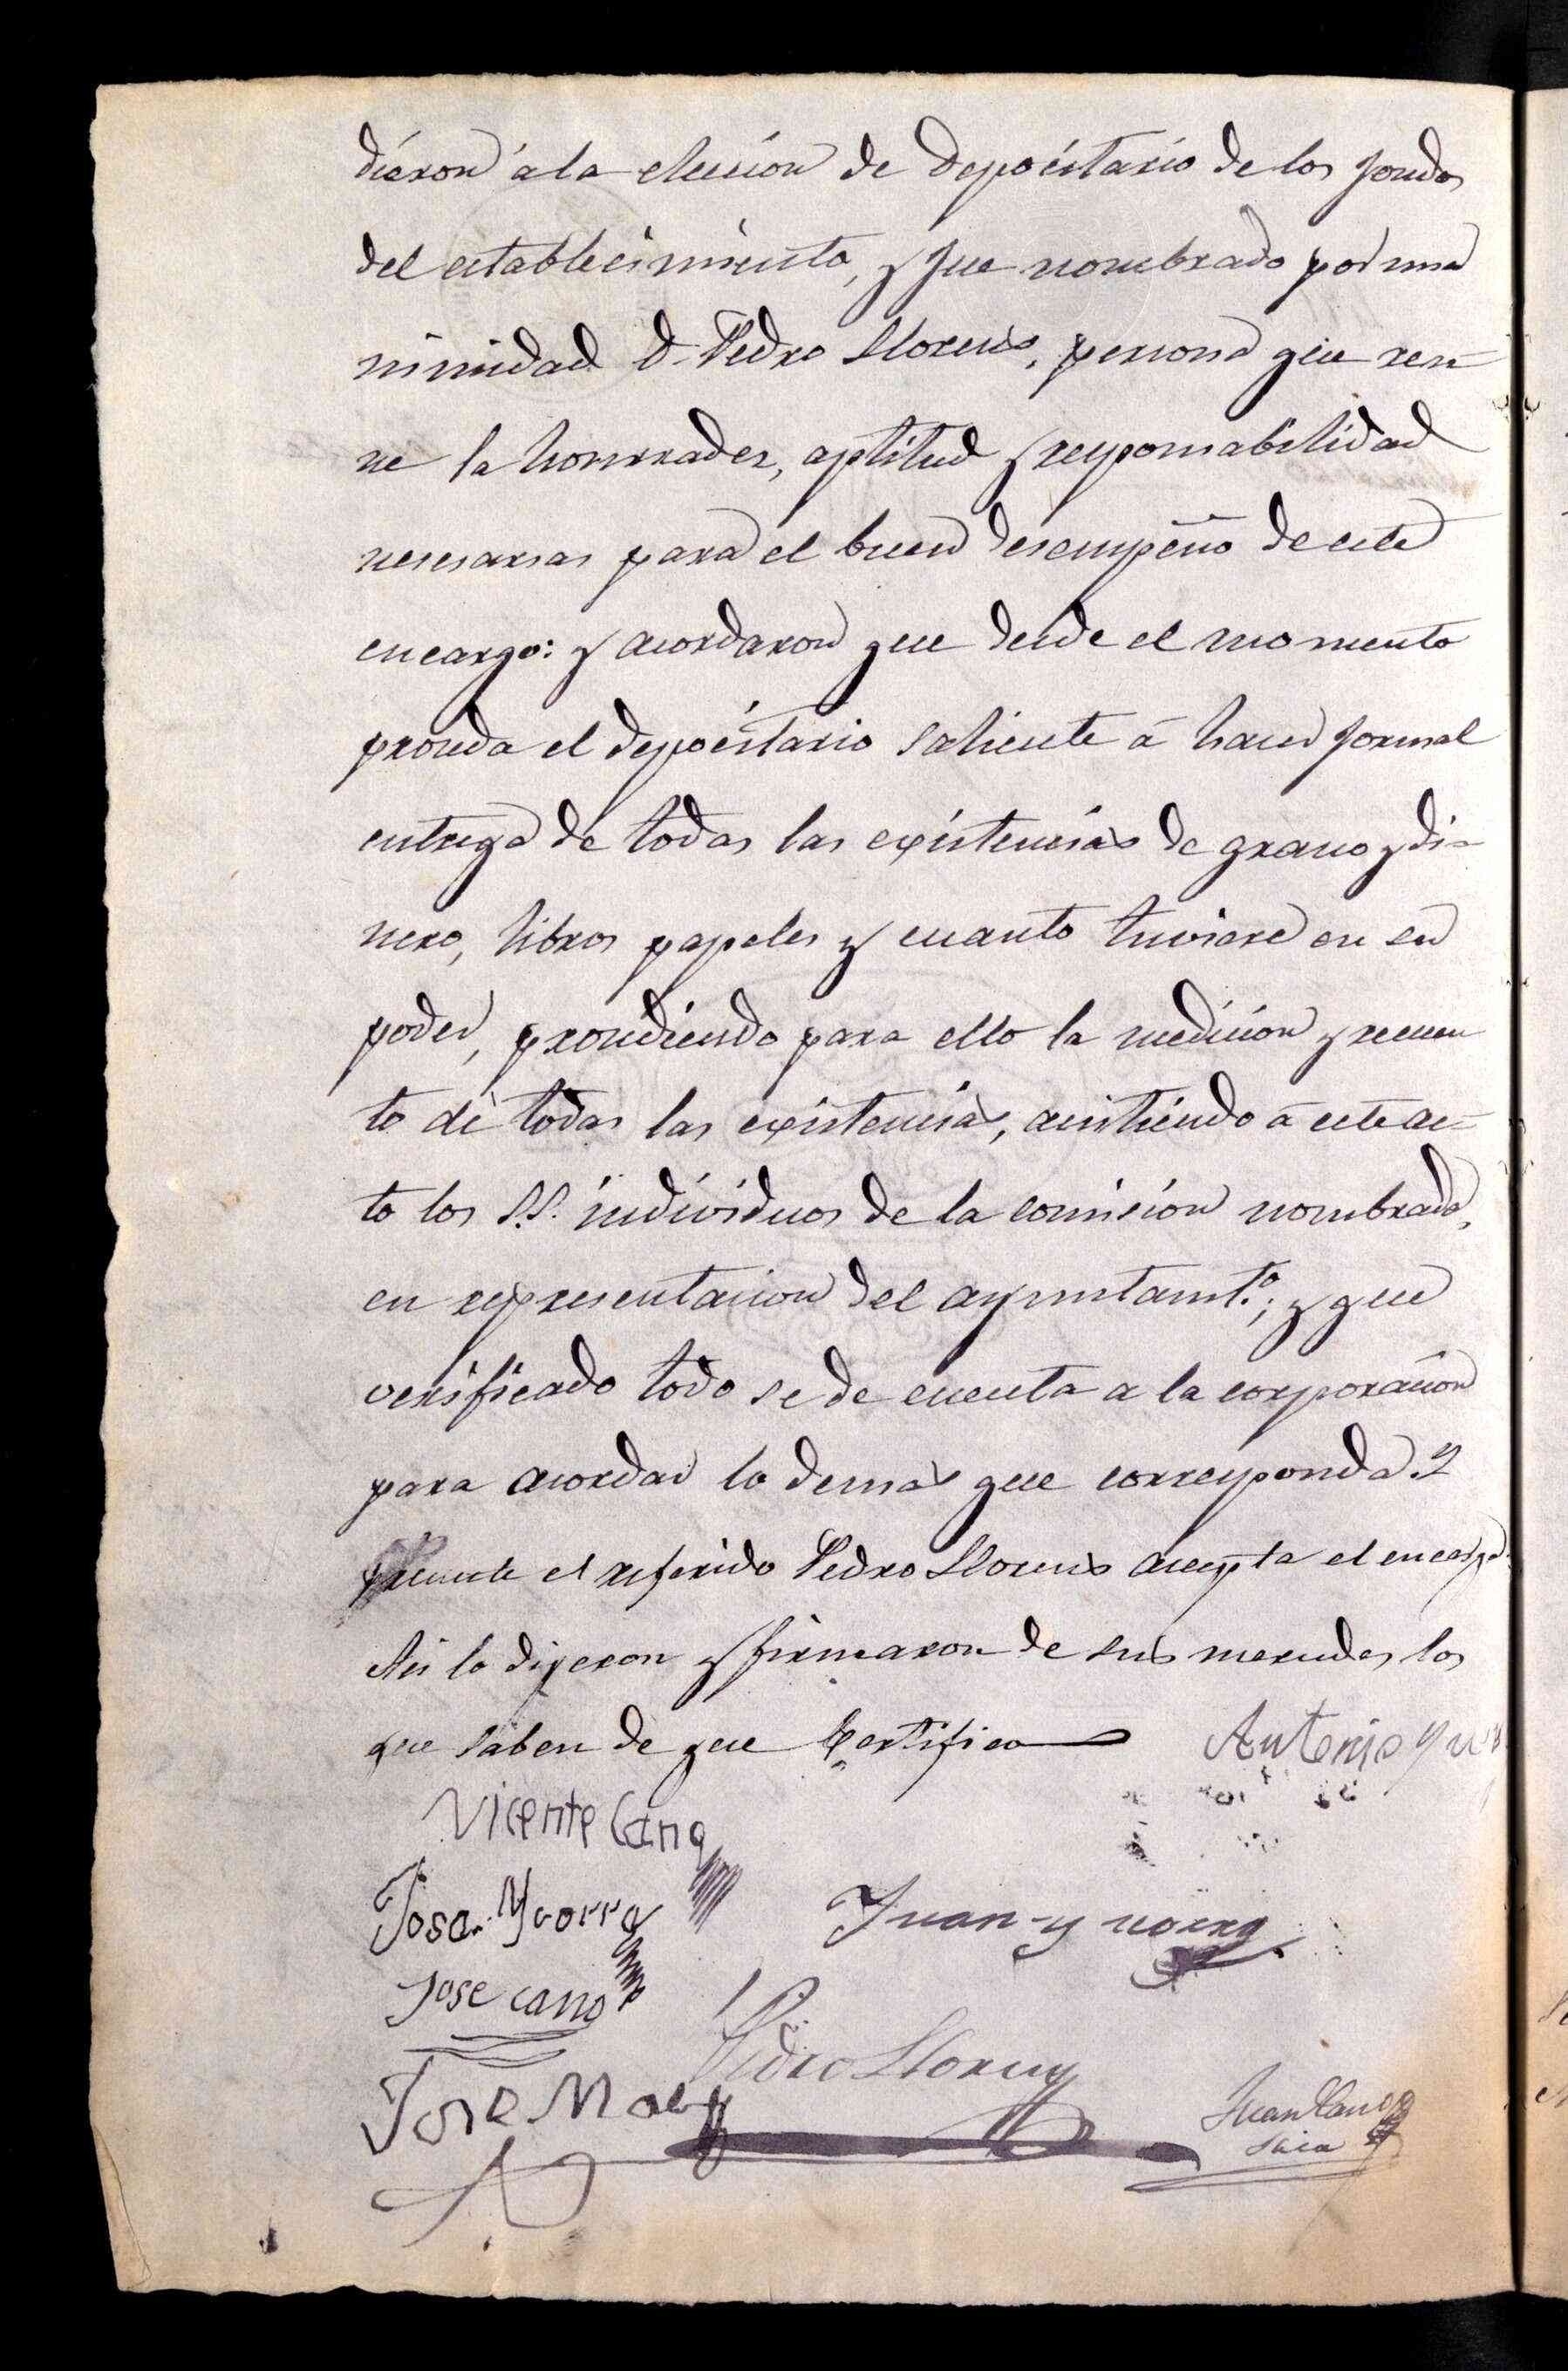 dieron á la eleccion de Depósitario de los fondos
del establecimiento, y fue nombrado por una
nimidad D. Pedro Llorens, persona que reu-
ne la honrradez, aptitud y responsabilidad
necesarias para el buen desempeño de este
encargo: y acordaron que desde el momento
proceda el depósitario saliente á hacer formal
entrega de todas las existencias de grano y di-
nero, libros papeles y cuanto tuviere en su
poder, procediendo para ello la medicion y recuen
to de todas las existencias, asistiendo á este ac-
to los S.S. individuos de la comision nombrada,
en representacion del ayuntamto.; y que
verificado todo se de cuenta a la corporacion
para acordar lo demas que corresponda. Y
presente el referido Pedro Llorens acepta el encargo.
Asi lo dijeron y firmaron de sus mercedes los
que saben de que Certifico
Antonio
Vicente Cano
Jose Yvorra
Juan yvorra
Jose cano
Pedro Llorens
Jose Ma
Juan Cano